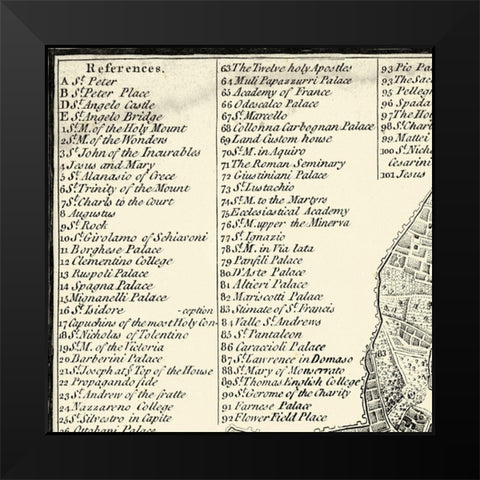 References.
A St. Peter
B St. Peter Place
D St. Angelo Castle
E St. Angelo Bridge
1 St. M. of the Holy Mount
2 St. M. of the Wonders
3 St. John of the Incurables
4 Jesus and Mary
5 St. Alanasio of Grece
6 St. Trinity of the Mount
7 St. Charls to the Court
8 Augustus
9 St. Rock
10 St. Girolamo of Schiavoni
11 Borghese Palace
12 Clementino College
13 Ruspoli Palace
14 Spagna Palace
15 Mignanelli Palace
16 St. Isidore -ception
17 Capuchins of the most Holy Con-
18 St. Nicholas of Tolentino
19 St. M. of the Victoria
20 Barberini Palace
21 St. Joseph at ye. Top of the House
22 Propagando fide
23 St. Andrew of the fratte
24 Nazzareno College
25 St. Silvestro in Capite
26 Ottoboni Palace
63 The Twelve holy Apostles
64 Muli Papazzurri Palace
65 Academy of France
66 Odescalco Palace
67 St. Marcello
68 Collonna Carbognan Palace
69 Land Custom house
70 St. M. in Aquiro
71 The Roman Seminary
72 Giustiniani Palace
73 St. Lustachio
74 St. M. to the Martyrs
75 Ecclesiastical Academy
76 St. M. upper the Minerva
77 St. Ignazio
78 St. M. in Via lata
79 Panfili Palace
80 D'Aste Palace
81 Altieri Palace
82 Mariscotti Palace
83 Stimate of St. Francis
84 Valle St. Andrews
85 St. Pantaleon
86 Caraccioli Palace
87 St. Lawrence in Domaso
88 St. Mary of Monserrato
89 St. Thomas English College
90 St. Gerome of the Charity
91 Farnese Palace
92 Flower Field Place
93 Pio Pa
94 Palace
93 The Sac
95 Pellegr
96 Spada
97 The Ho
98 St. Charl
99 Mattei
100 St. Nich
Cesarini
101 Jesus